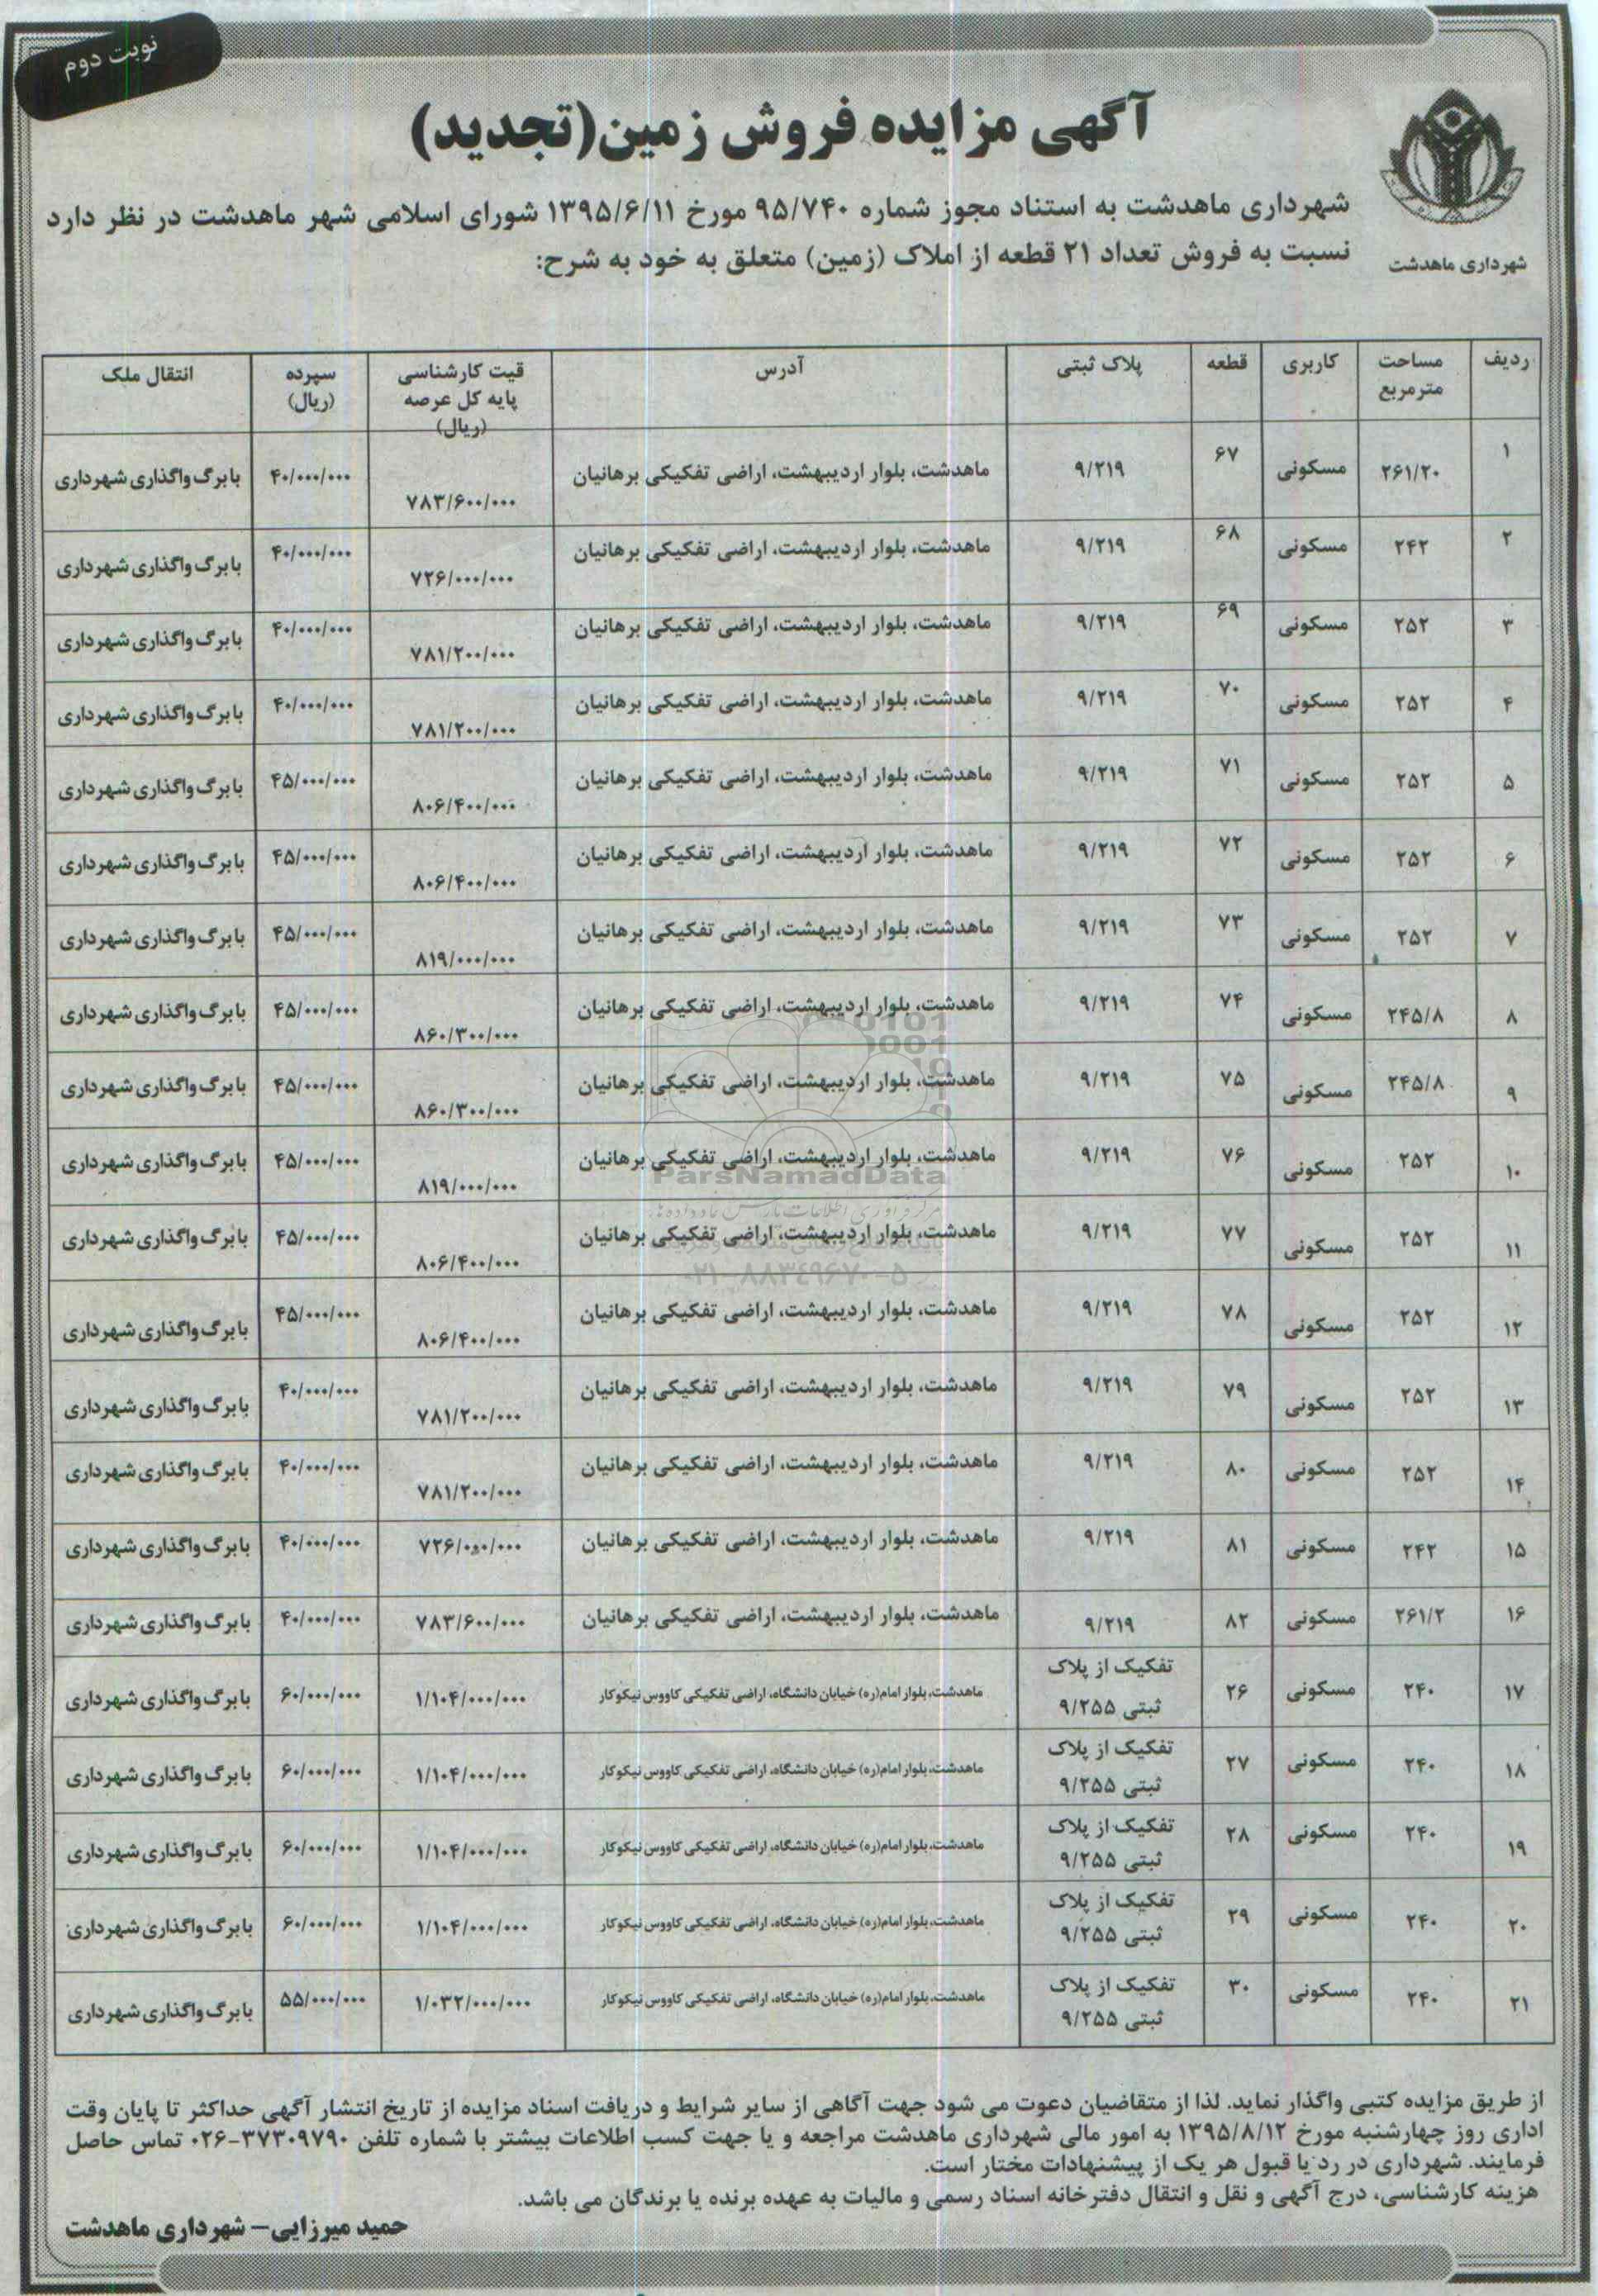 نوبت دوم
آگهی مزایده فروش زمین(تجدید)
شهرداری ماهدشت
شهرداری ماهدشت به استناد مجوز شماره ۹۵/۷۴۰ مورخ ۱۳۹۵/۶/۱۱ شورای اسلامی شهر ماهدشت در نظر دارد
نسبت به فروش تعداد ۲۱ قطعه از املاک (زمین) متعلق به خود به شرح:
ردیف | مساحت مترمربع | کاربری | قطعه | پلاک ثبتی | آدرس | قیت کارشناسی پایه کل عرصه (ریال) | سپرده (ریال) | انتقال ملک
۱ | ۲۶۱/۲۰ | مسکونی | ۶۷ | ۹/۲۱۹ | ماهدشت، بلوار اردیبهشت، اراضی تفکیکی برهانیان | ۷۸۳/۶۰۰/۰۰۰ | ۴۰/۰۰۰/۰۰۰ | با برگ واگذاری شهرداری
۲ | ۲۴۲ | مسکونی | ۶۸ | ۹/۲۱۹ | ماهدشت، بلوار اردیبهشت، اراضی تفکیکی برهانیان | ۷۲۶/۰۰۰/۰۰۰ | ۴۰/۰۰۰/۰۰۰ | با برگ واگذاری شهرداری
۳ | ۲۵۲ | مسکونی | ۶۹ | ۹/۲۱۹ | ماهدشت، بلوار اردیبهشت، اراضی تفکیکی برهانیان | ۷۸۱/۲۰۰/۰۰۰ | ۴۰/۰۰۰/۰۰۰ | با برگ واگذاری شهرداری
۴ | ۲۵۲ | مسکونی | ۷۰ | ۹/۲۱۹ | ماهدشت، بلوار اردیبهشت، اراضی تفکیکی برهانیان | ۷۸۱/۲۰۰/۰۰۰ | ۴۰/۰۰۰/۰۰۰ | با برگ واگذاری شهرداری
۵ | ۲۵۲ | مسکونی | ۷۱ | ۹/۲۱۹ | ماهدشت، بلوار اردیبهشت، اراضی تفکیکی برهانیان | ۸۰۶/۴۰۰/۰۰۰ | ۴۵/۰۰۰/۰۰۰ | با برگ واگذاری شهرداری
۶ | ۲۵۲ | مسکونی | ۷۲ | ۹/۲۱۹ | ماهدشت، بلوار اردیبهشت، اراضی تفکیکی برهانیان | ۸۰۶/۴۰۰/۰۰۰ | ۴۵/۰۰۰/۰۰۰ | با برگ واگذاری شهرداری
۷ | ۲۵۲ | مسکونی | ۷۳ | ۹/۲۱۹ | ماهدشت، بلوار اردیبهشت، اراضی تفکیکی برهانیان | ۸۱۹/۰۰۰/۰۰۰ | ۴۵/۰۰۰/۰۰۰ | با برگ واگذاری شهرداری
۸ | ۲۴۵/۸ | مسکونی | ۷۴ | ۹/۲۱۹ | ماهدشت، بلوار اردیبهشت، اراضی تفکیکی برهانیان | ۸۶۰/۳۰۰/۰۰۰ | ۴۵/۰۰۰/۰۰۰ | با برگ واگذاری شهرداری
۹ | ۲۴۵/۸ | مسکونی | ۷۵ | ۹/۲۱۹ | ماهدشت، بلوار اردیبهشت، اراضی تفکیکی برهانیان | ۸۶۰/۳۰۰/۰۰۰ | ۴۵/۰۰۰/۰۰۰ | با برگ واگذاری شهرداری
۱۰ | ۲۵۲ | مسکونی | ۷۶ | ۹/۲۱۹ | ماهدشت، بلوار اردیبهشت، اراضی تفکیکی برهانیان | ۸۱۹/۰۰۰/۰۰۰ | ۴۵/۰۰۰/۰۰۰ | با برگ واگذاری شهرداری
ParsNamadData
۱۱ | ۲۵۲ | مسکونی | ۷۷ | ۹/۲۱۹ | ماهدشت، بلوار اردیبهشت، اراضی تفکیکی برهانیان | ۸۰۶/۴۰۰/۰۰۰ | ۴۵/۰۰۰/۰۰۰ | با برگ واگذاری شهرداری
۰۲۱-۸۸۳۴۹۶۷۰-۵
۱۲ | ۲۵۲ | مسکونی | ۷۸ | ۹/۲۱۹ | ماهدشت، بلوار اردیبهشت، اراضی تفکیکی برهانیان | ۸۰۶/۴۰۰/۰۰۰ | ۴۵/۰۰۰/۰۰۰ | با برگ واگذاری شهرداری
۱۳ | ۲۵۲ | مسکونی | ۷۹ | ۹/۲۱۹ | ماهدشت، بلوار اردیبهشت، اراضی تفکیکی برهانیان | ۷۸۱/۲۰۰/۰۰۰ | ۴۰/۰۰۰/۰۰۰ | با برگ واگذاری شهرداری
۱۴ | ۲۵۲ | مسکونی | ۸۰ | ۹/۲۱۹ | ماهدشت، بلوار اردیبهشت، اراضی تفکیکی برهانیان | ۷۸۱/۲۰۰/۰۰۰ | ۴۰/۰۰۰/۰۰۰ | با برگ واگذاری شهرداری
۱۵ | ۲۴۲ | مسکونی | ۸۱ | ۹/۲۱۹ | ماهدشت، بلوار اردیبهشت، اراضی تفکیکی برهانیان | ۷۲۶/۰۰۰/۰۰۰ | ۴۰/۰۰۰/۰۰۰ | با برگ واگذاری شهرداری
۱۶ | ۲۶۱/۲ | مسکونی | ۸۲ | ۹/۲۱۹ | ماهدشت، بلوار اردیبهشت، اراضی تفکیکی برهانیان | ۷۸۳/۶۰۰/۰۰۰ | ۴۰/۰۰۰/۰۰۰ | با برگ واگذاری شهرداری
۱۷ | ۲۴۰ | مسکونی | ۲۶ | تفکیک از پلاک ثبتی ۹/۲۵۵ | ماهدشت، بلوار امام(ره) خیابان دانشگاه، اراضی تفکیکی کاووس نیکوکار | ۱/۱۰۴/۰۰۰/۰۰۰ | ۶۰/۰۰۰/۰۰۰ | با برگ واگذاری شهرداری
۱۸ | ۲۴۰ | مسکونی | ۲۷ | تفکیک از پلاک ثبتی ۹/۲۵۵ | ماهدشت، بلوار امام(ره) خیابان دانشگاه، اراضی تفکیکی کاووس نیکوکار | ۱/۱۰۴/۰۰۰/۰۰۰ | ۶۰/۰۰۰/۰۰۰ | با برگ واگذاری شهرداری
۱۹ | ۲۴۰ | مسکونی | ۲۸ | تفکیک از پلاک ثبتی ۹/۲۵۵ | ماهدشت، بلوار امام(ره) خیابان دانشگاه، اراضی تفکیکی کاووس نیکوکار | ۱/۱۰۴/۰۰۰/۰۰۰ | ۶۰/۰۰۰/۰۰۰ | با برگ واگذاری شهرداری
۲۰ | ۲۴۰ | مسکونی | ۲۹ | تفکیک از پلاک ثبتی ۹/۲۵۵ | ماهدشت، بلوار امام(ره) خیابان دانشگاه، اراضی تفکیکی کاووس نیکوکار | ۱/۱۰۴/۰۰۰/۰۰۰ | ۶۰/۰۰۰/۰۰۰ | با برگ واگذاری شهرداری
۲۱ | ۲۴۰ | مسکونی | ۳۰ | تفکیک از پلاک ثبتی ۹/۲۵۵ | ماهدشت، بلوار امام(ره) خیابان دانشگاه، اراضی تفکیکی کاووس نیکوکار | ۱/۰۳۲/۰۰۰/۰۰۰ | ۵۵/۰۰۰/۰۰۰ | با برگ واگذاری شهرداری
از طریق مزایده کتبی واگذار نماید. لذا از متقاضیان دعوت می شود جهت آگاهی از سایر شرایط و دریافت اسناد مزایده از تاریخ انتشار آگهی حداکثر تا پایان وقت
اداری روز چهارشنبه مورخ ۱۳۹۵/۸/۱۲ به امور مالی شهرداری ماهدشت مراجعه و یا جهت کسب اطلاعات بیشتر با شماره تلفن ۳۷۳۰۹۷۹۰-۰۲۶ تماس حاصل
فرمایند. شهرداری در رد یا قبول هر یک از پیشنهادات مختار است.
هزینه کارشناسی، درج آگهی و نقل و انتقال دفترخانه اسناد رسمی و مالیات به عهده برنده یا برندگان می باشد.
حمید میرزایی- شهرداری ماهدشت